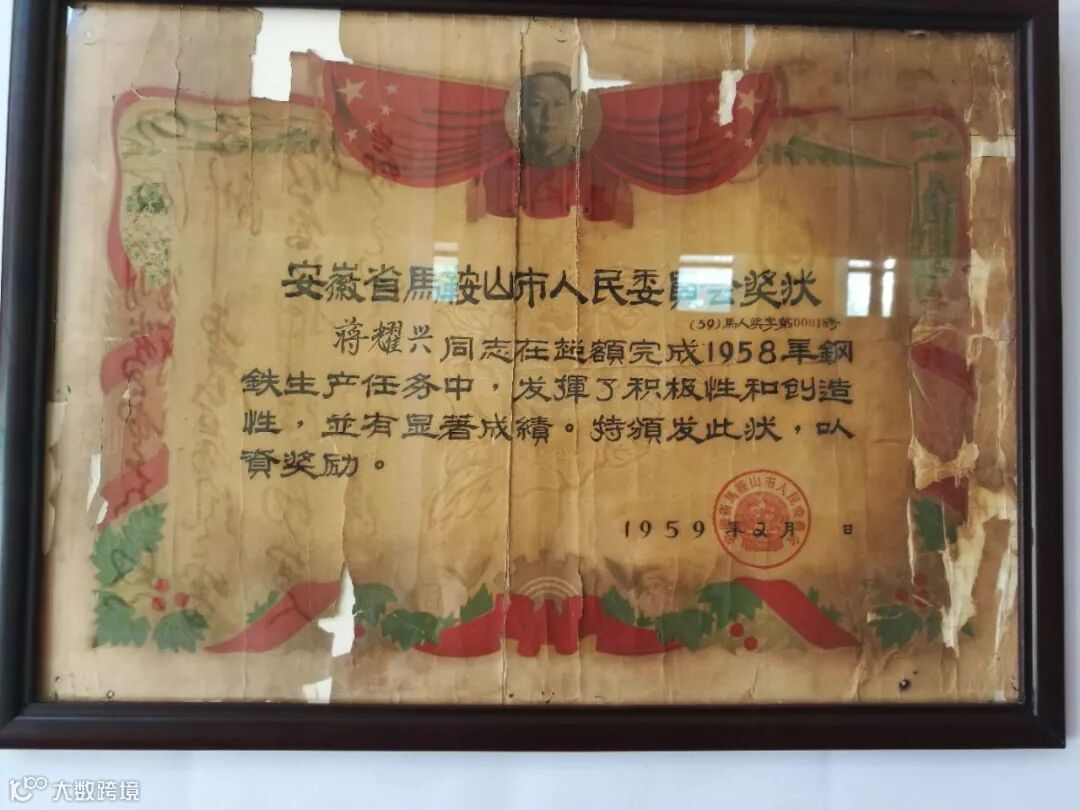 安徽省馬鞍山市人民委員会奖状
(59)馬人奖字第00018号
蒋耀兴同志在超額完成1958年鋼
鉄生产任务中，发揮了积极性和创造
性，並有显著成績。特頒发此状，以
資奖励。
安徽省馬鞍山市人民委員会
1959年2月 日
大数跨境